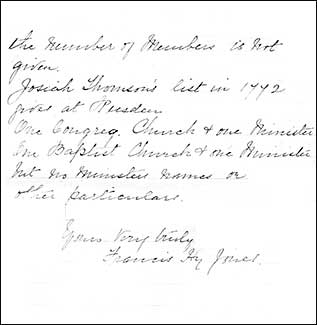 the number of Members is not
given.
Josiah Thomson's list in 1772
gives at Rusden
One Congreg. Church & one Minister
One Baptist Church & one Minister
but no Ministers names or
other particulars.
Yours very truly
Francis Hy Jones.